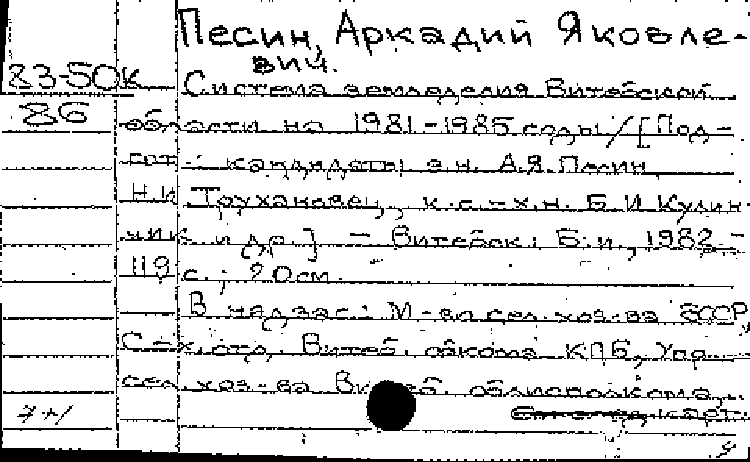 Песин, Аркадий Яковле-
вич.
83-50к
86
Система земледелия Витебской
области на 1981-1985 годы / [Под-
гот.: кандидаты э.н. А.Я. Песин,
Н.И. Трухановец, к.с.-х.н. Б.И. Кулин-
чик и др.] – Витебск: Б.и., 1982.-
119 с.; 20см.
В надзаг.: М-во сел. хоз-ва БССР,
С-х. отд. Витеб. обкома КПБ, Упр.
сел. хоз-ва Витеб. облисполкома.
7+1
карт.